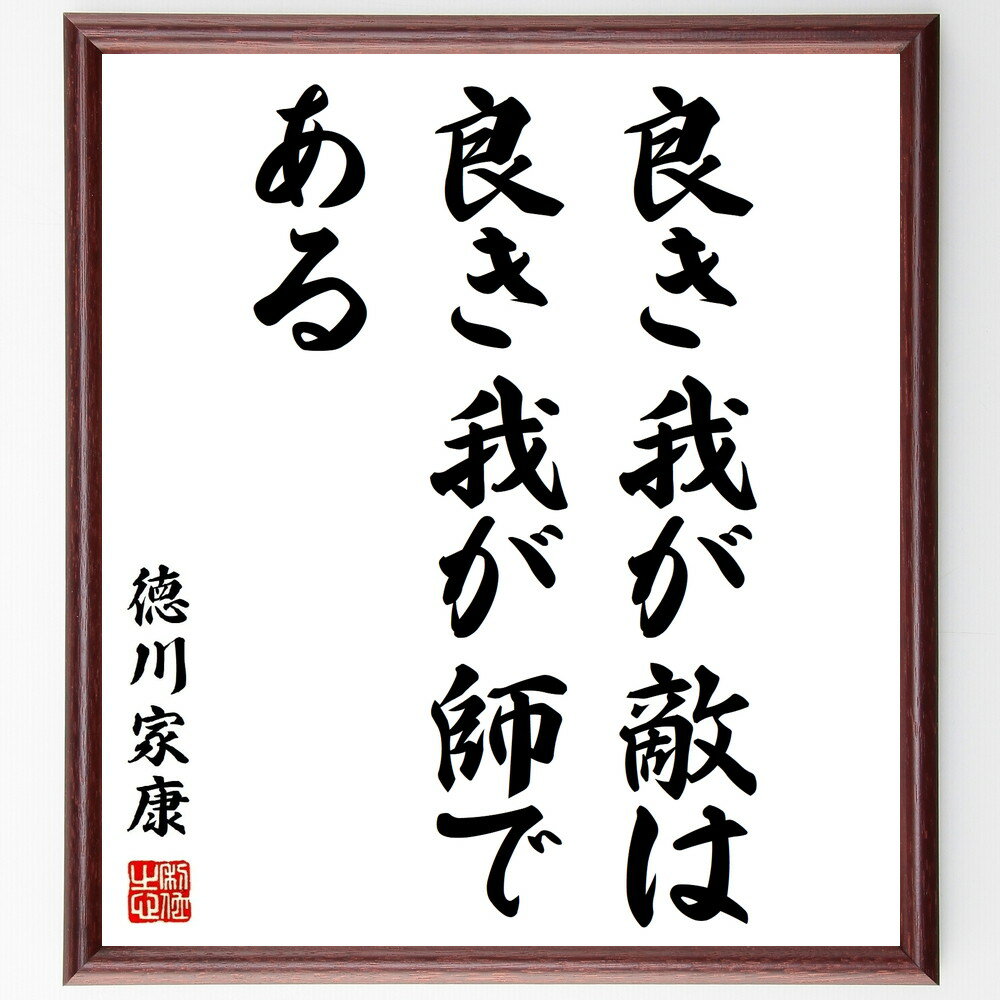 良き我が敵は
良き我が師で
ある
徳川家康